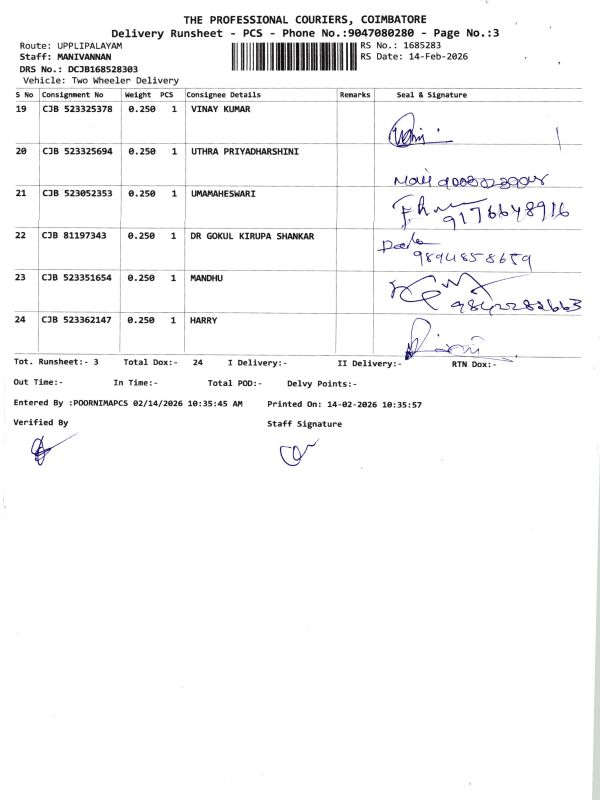 THE PROFESSIONAL COURIERS, COIMBATORE
Delivery Runsheet - PCS - Phone No.:9047080280 - Page No.:3
Route: UPPLIPALAYAM
RS No.: 1685283
Staff: MANIVANNAN
RS Date: 14-Feb-2026
DRS No.: DCJB168528303
Vehicle: Two Wheeler Delivery
S No Consignment No Weight PCS Consignee Details Remarks Seal & Signature
19 CJB 523325378 0.250 1 VINAY KUMAR
20 CJB 523325694 0.250 1 UTHRA PRIYADHARSHINI
21 CJB 523052353 0.250 1 UMAMAHESWARI
9176648916
22 CJB 81197343 0.250 1 DR GOKUL KIRUPA SHANKAR
9894858659
23 CJB 523351654 0.250 1 MANDHU
9842282663
24 CJB 523362147 0.250 1 HARRY
Tot. Runsheet:- 3 Total Dox:- 24 I Delivery:- II Delivery:- RTN Dox:-
Out Time:- In Time:- Total POD:- Delvy Points:-
Entered By :POORNIMAPCS 02/14/2026 10:35:45 AM Printed On: 14-02-2026 10:35:57
Verified By Staff Signature